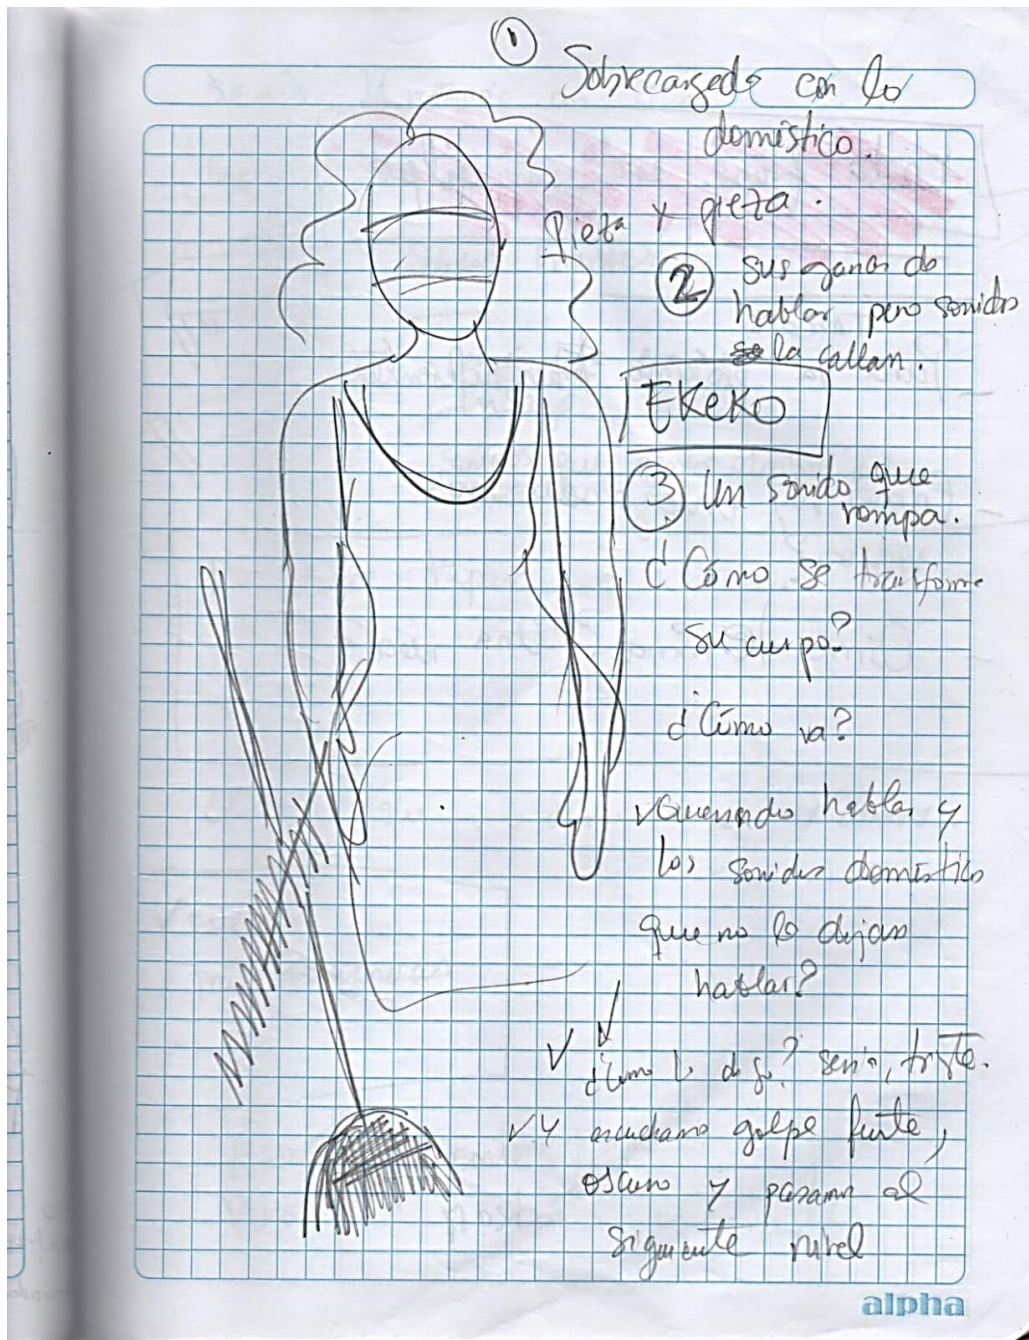 ①
Sobrecargado con lo
doméstico.
Pieza x pieza.
② sus ganas de
hablar pero sonidos
la callan.
EKEKO
③ Un sonido que
rompa.
¿Cómo se transforma
su cuerpo?
¿Cómo va?
Queriendo hablar y
los sonidos domésticos
que no lo dejan
hablar?
¿Como lo digo? seria, triste.
Y escuchamos golpe fuerte,
oscuro y pasamos al
siguiente nivel
alpha